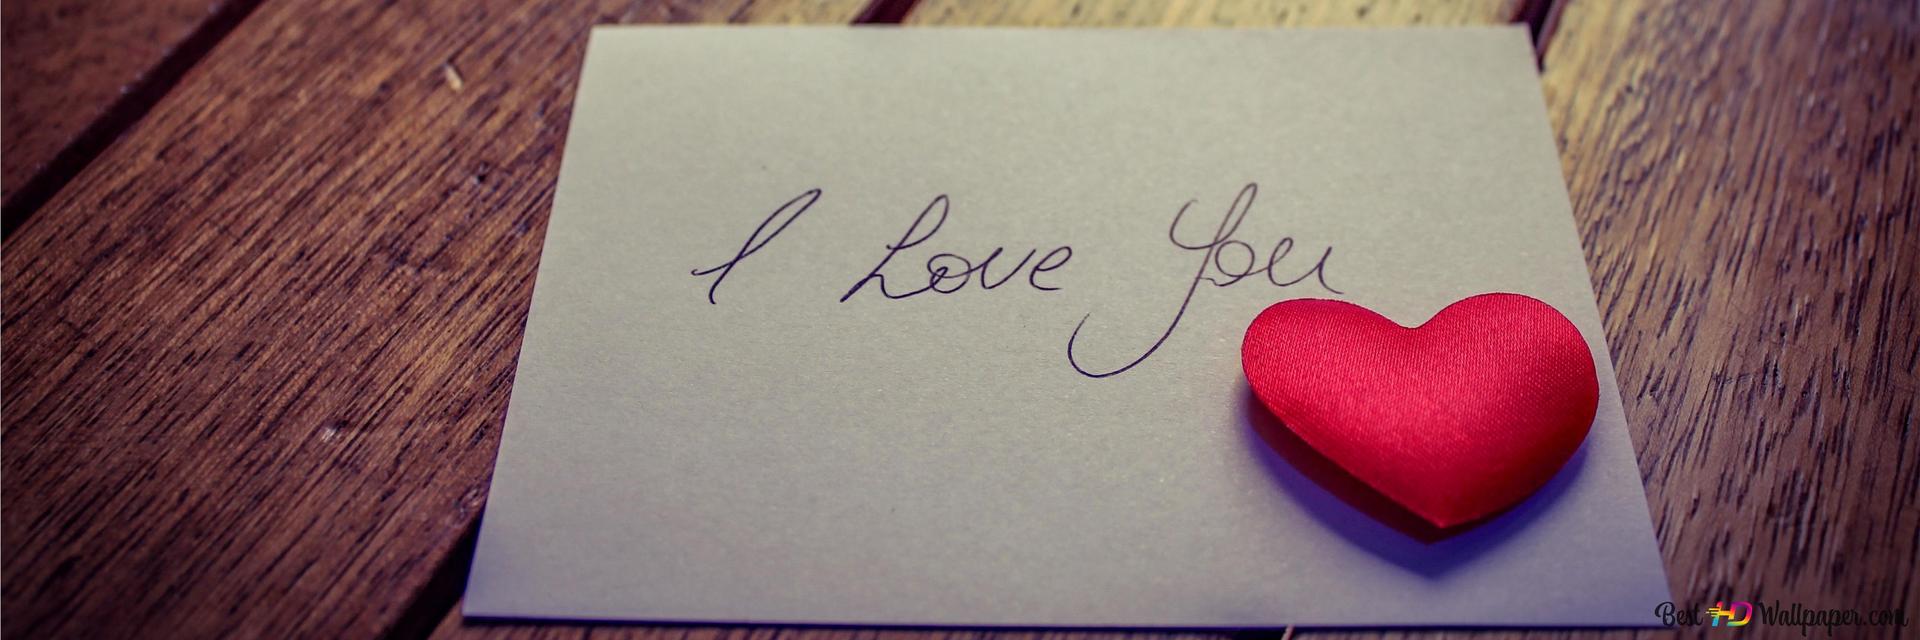 I Love You
Best HD Wallpaper.com